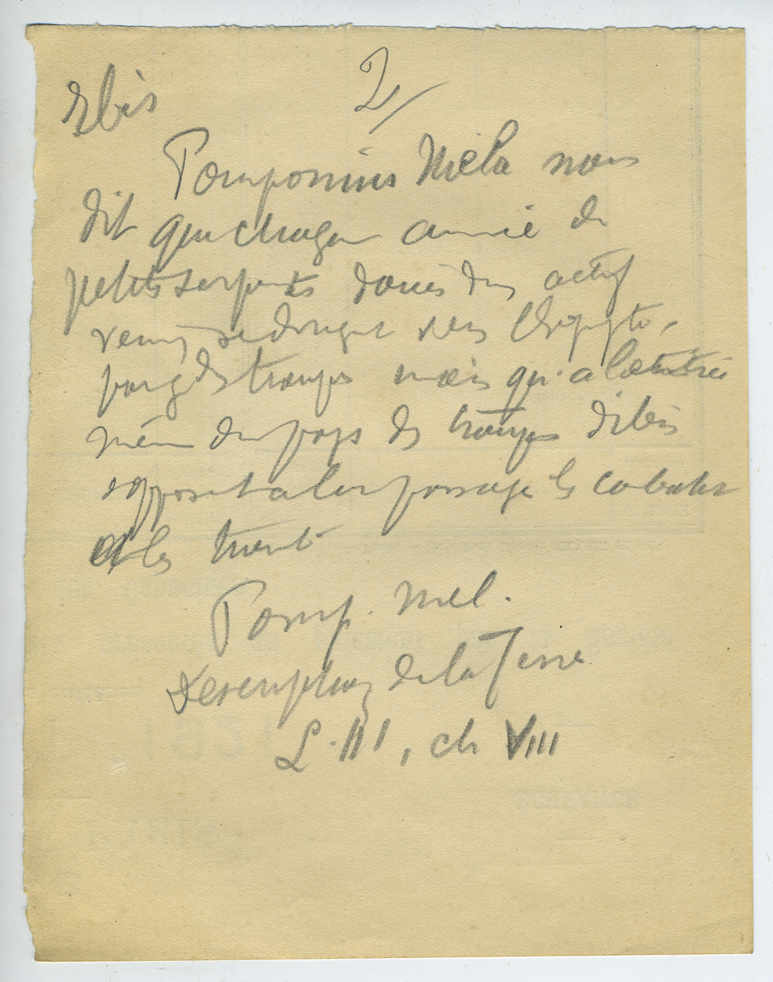 Ibis 2/
Pomponius Mela nous
dit que chaque année de
petits serpents
se dirigent vers l'Egypte,
par gdes troupes mais qu'a l'entrée
même du pays des troupes d'ibis
s'opposent a leur passage les combattent
et les tuent
Pomp. Mel.
Description de la Terre
L. III, ch VIII